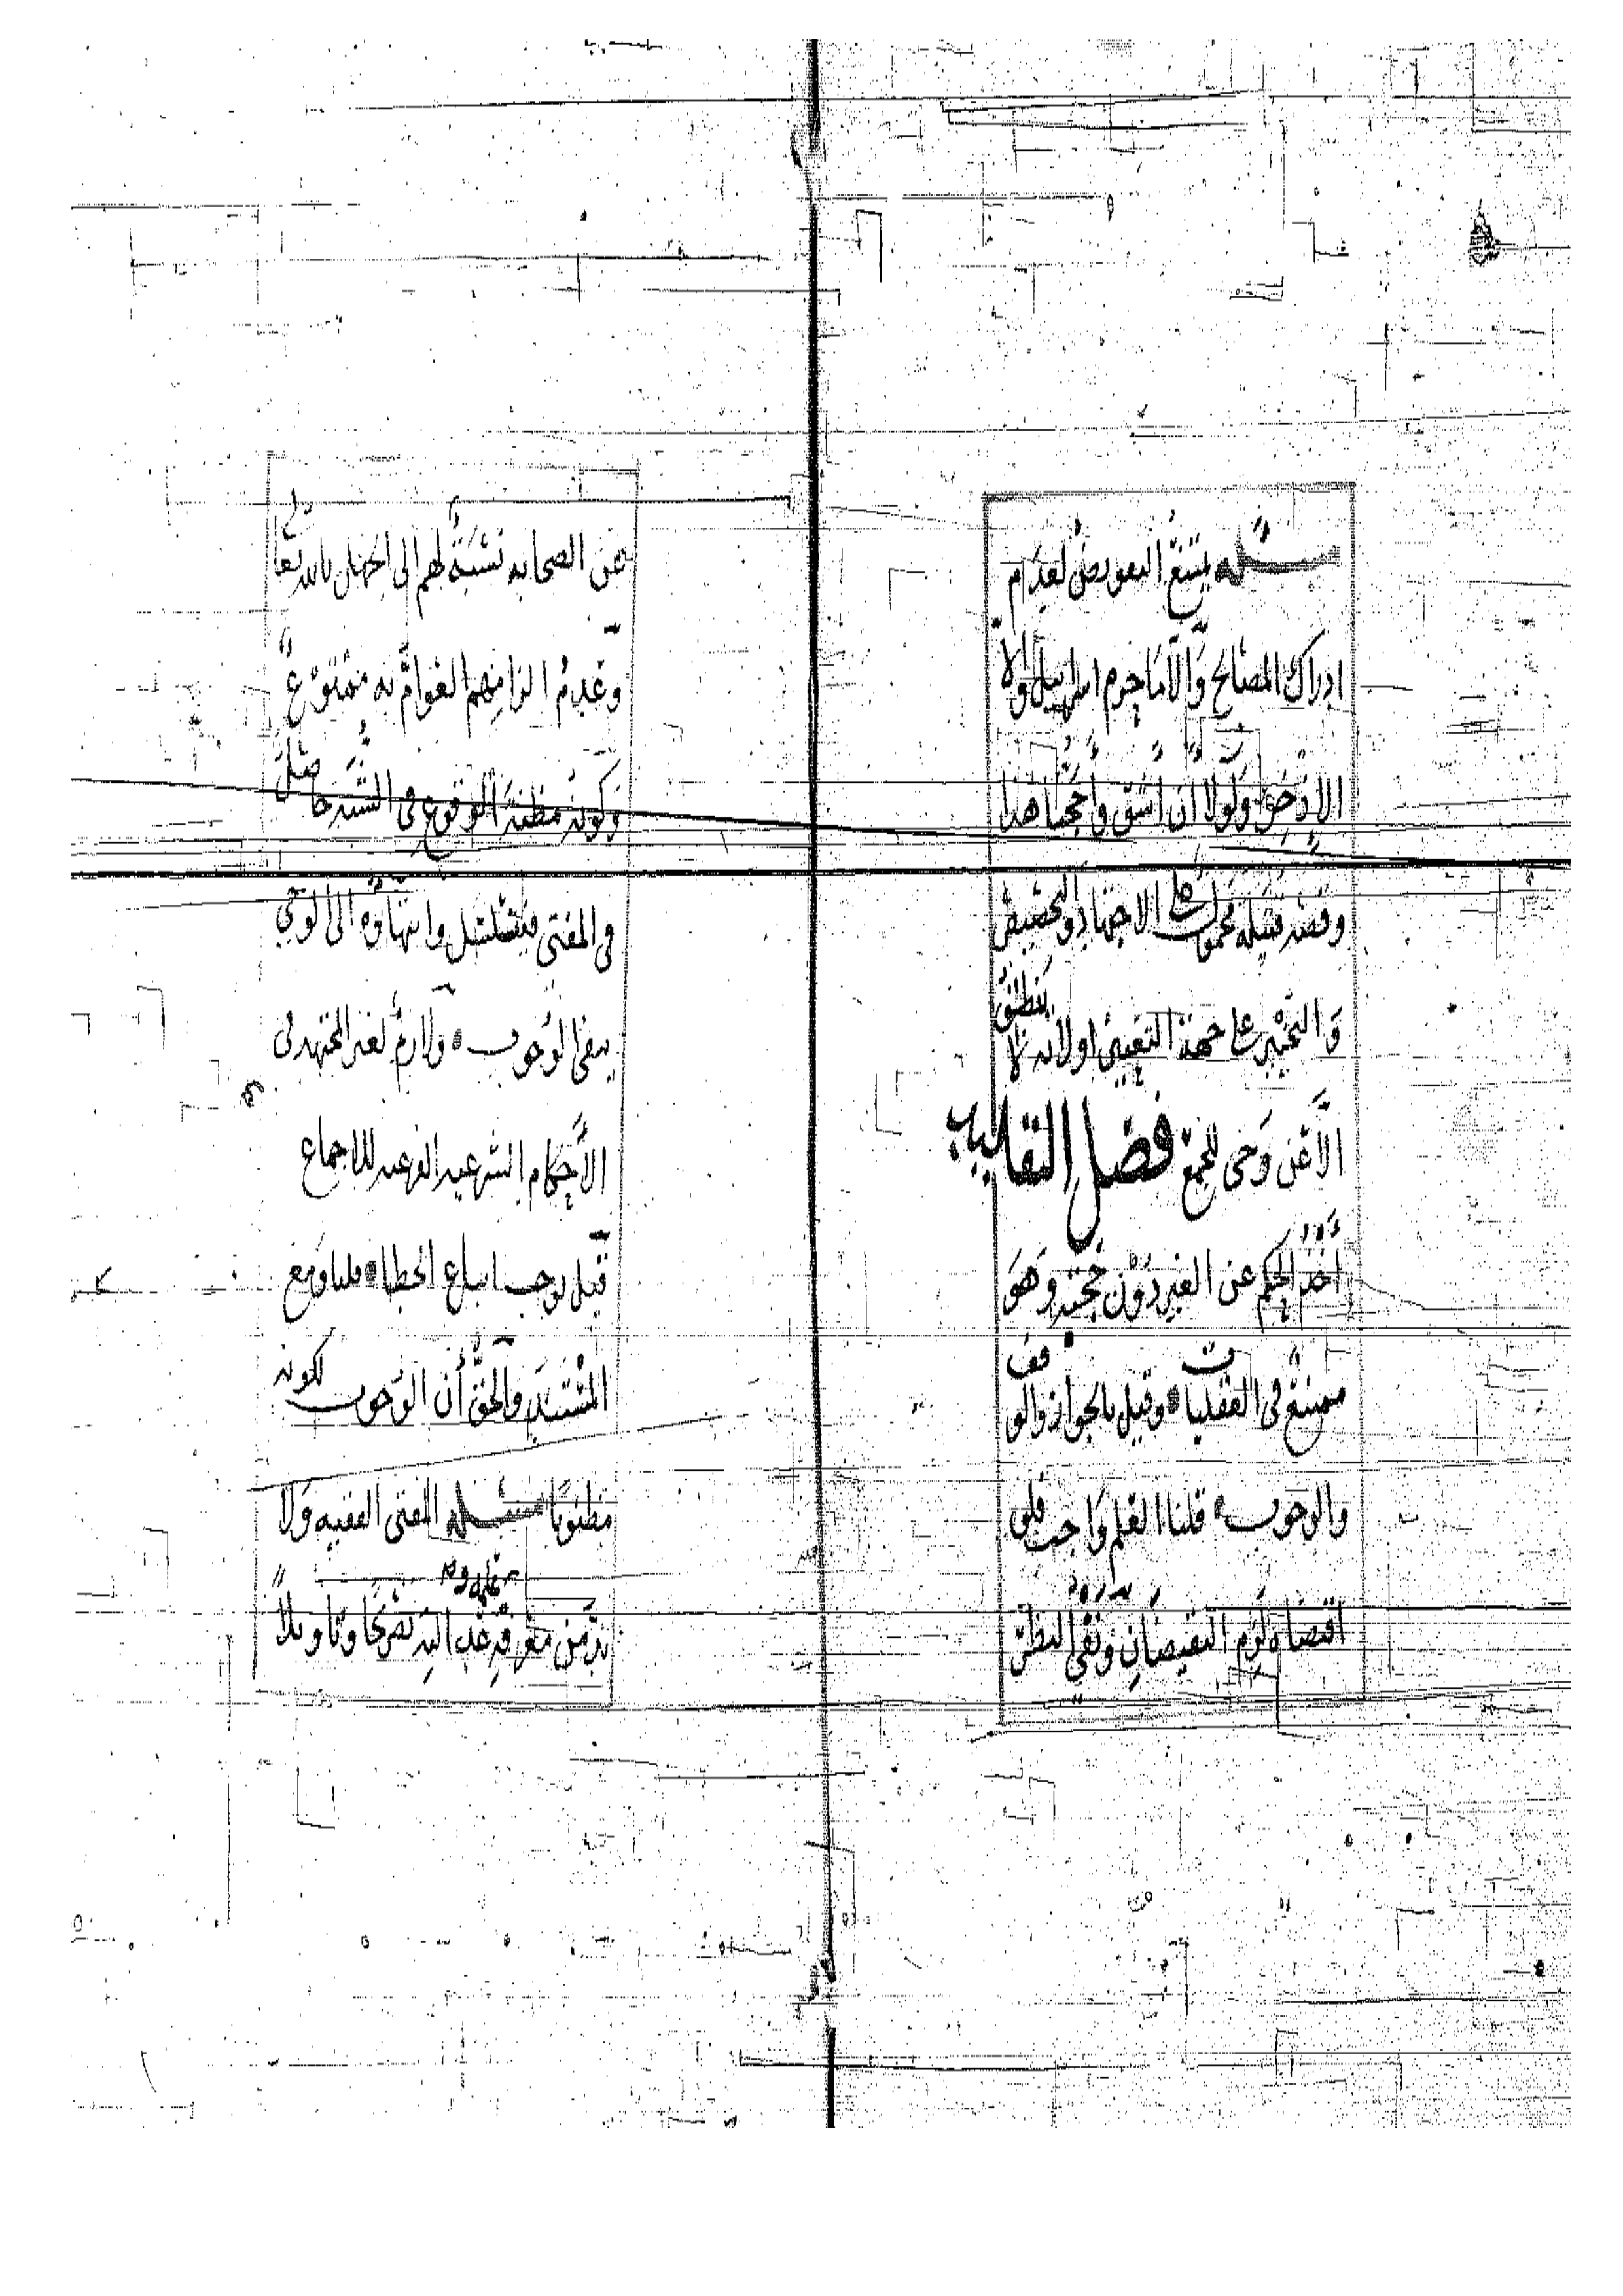 مسئله يمتنع التفويض لعدم
ادراك المصالح والا ما حرم اسرائيل والا
الاذخر ولولا ان اشق وأحجنا هذا
وقصه قتيله محمول على الاجتهاد والتخصيص
والتخيير على جهة التعيين اولا لانه لا ينطق
الا عن وحى للجمع فصل التقليد
أخذ الحكم عن الغير دون حجته وهو
ممتنع فى العقليات وقيل بالجواز والوقف
والوجوب قلنا العلم واجب فلو
اقتضاه لزم النقيضان ونفى النظر
عن الصحابه نسبة لهم الى الجهل بالله تعالى
وعدم الزامهم العوام به ممنوع
وكونه مظنة الوقوع فى الشبه حاصل
فى المفتى فيتسلسل وانتهاؤه الى الوحى
ينفى الوجوب ولازم لغير المجتهد فى
الأحكام الشرعيه الفرعيه للاجماع
قيل يوجب اتباع الخطا قلنا ومع
المستند والحق أن الوجوب لكونه
مظنونا مسئله المفتى الفقيه ولا
بد من معرفة تصريحا وتاويلا